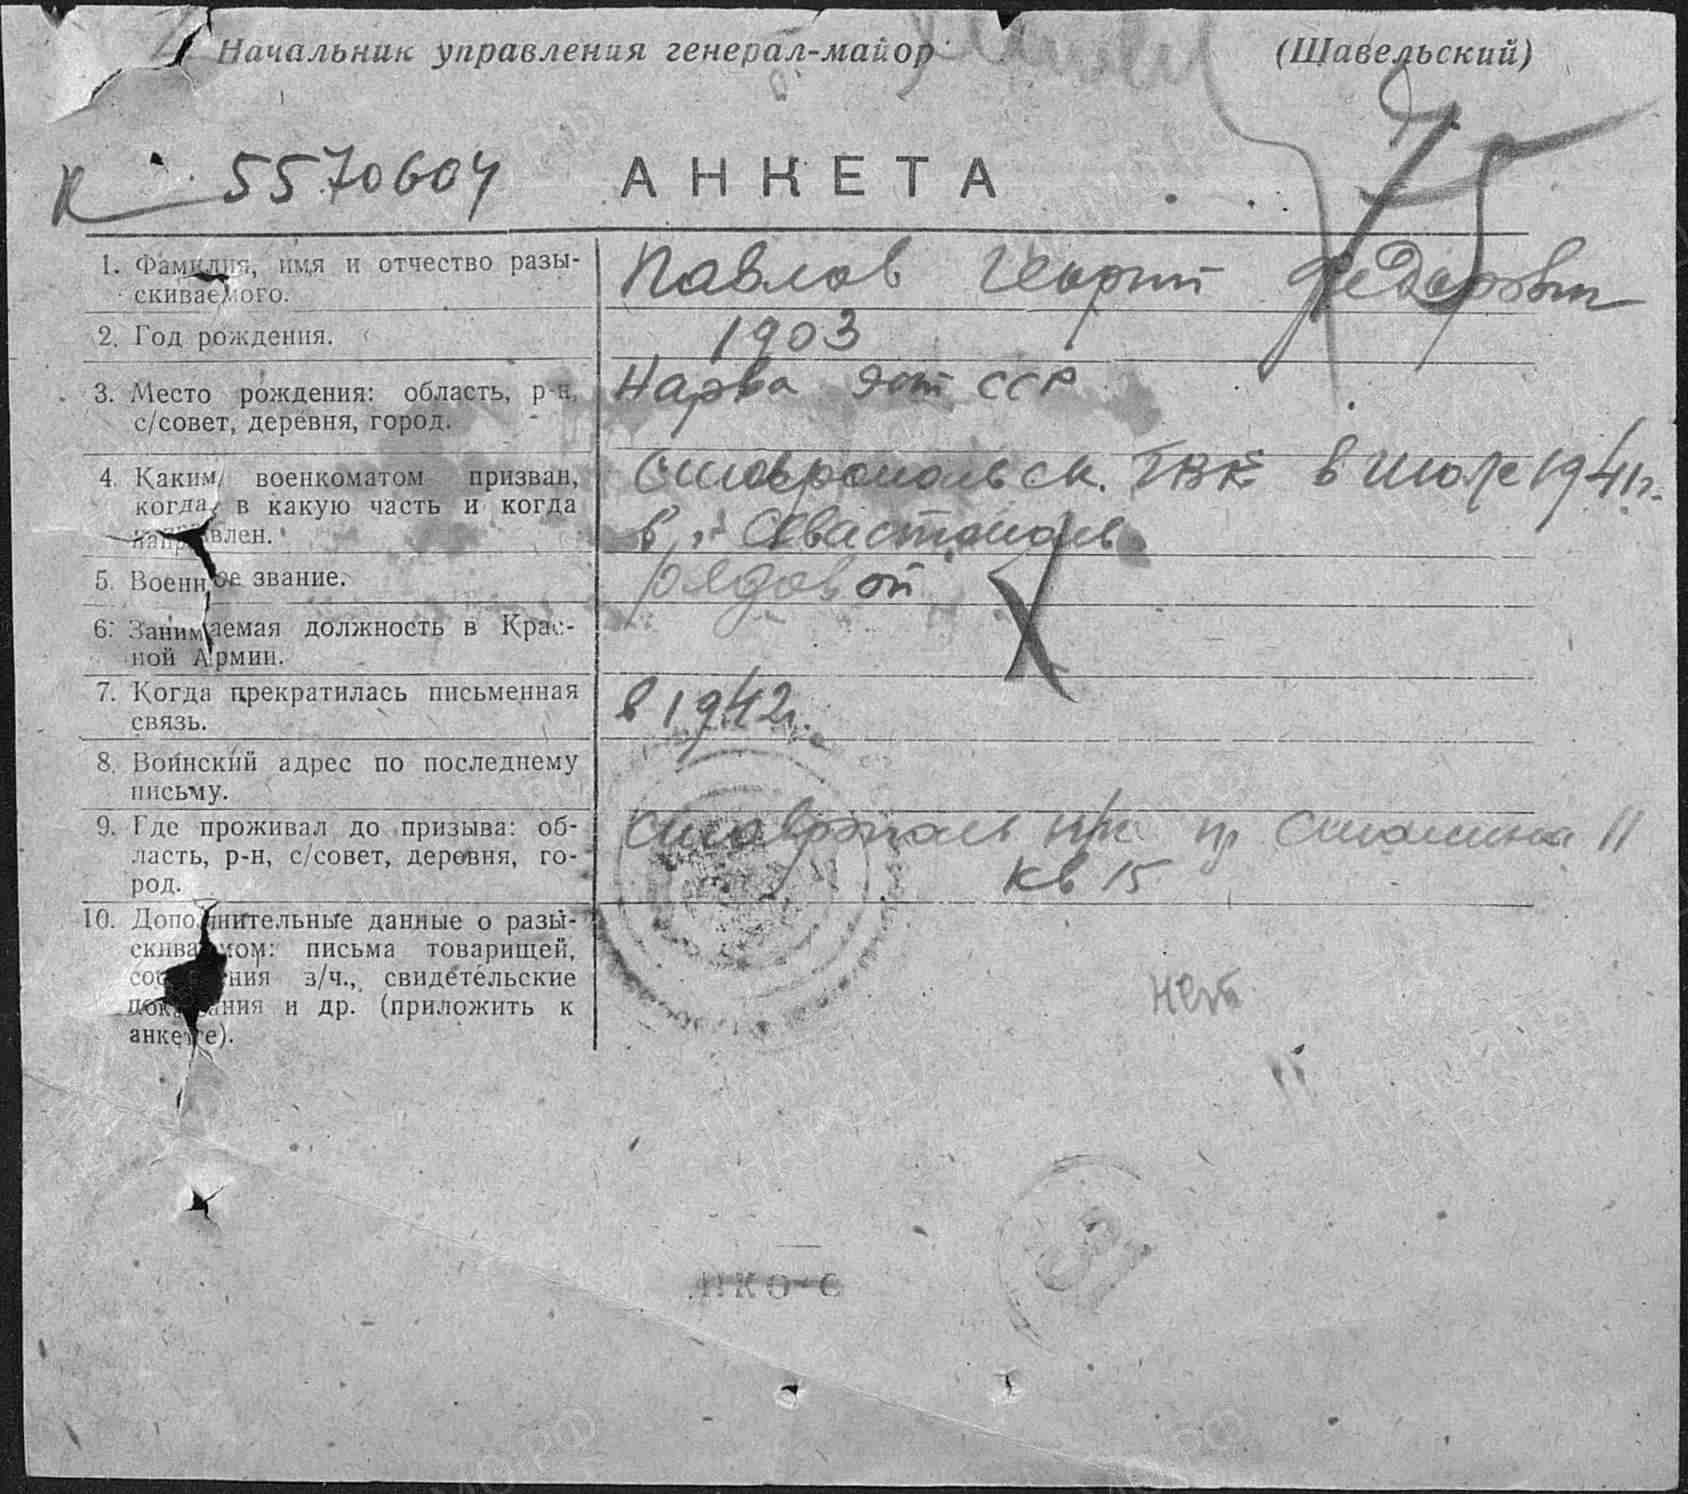 Начальник управления генерал-майор (Шавельский)
К 5570604 АНКЕТА 75
1. Фамилия, имя и отчество разы-
скиваемого.
Павлов Георгий Федорович
2. Год рождения.
1903
3. Место рождения: область, р-н,
с/совет, деревня, город.
Нарва Эст ССР
4. Каким военкоматом призван,
когда, в какую часть и когда
направлен.
Ставропольск. ГВК в июле 1941г.
в г. Севастополь
5. Военное звание.
рядовой
6. Занимаемая должность в Крас-
ной Армии.
7. Когда прекратилась письменная
связь.
в 1942г.
8. Воинский адрес по последнему
письму.
9. Где проживал до призыва: об-
ласть, р-н, с/совет, деревня, го-
род.
Ставрополь пр Сталина 11
кв 15
10. Дополнительные данные о разы-
скиваемом: письма товарищей,
сообщения в/ч., свидетельские
показания и др. (приложить к
анкете).
нет
НКО-С